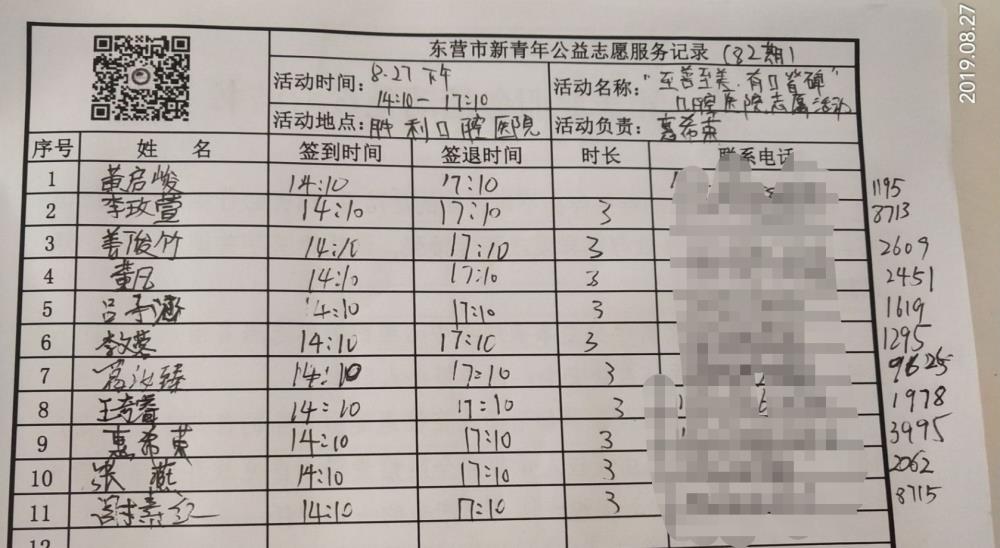 2019.08.27
东营市新青年公益志愿服务记录 (82期)
活动时间: 8.27 下午 14:10- 17:10
活动名称: "至善至美.有口皆碑" 口腔医院志愿活动
活动地点: 胜利口腔医院
活动负责: 高希荣
序号 姓名 签到时间 签退时间 时长 联系电话
1 董启峻 14:10 17:10 1195
2 李玫萱 14:10 17:10 3 8713
3 姜俊竹 14:10 17:10 3 2609
4 董凡 14:10 17:10 3 2451
5 吕子涵 14:10 17:10 3 1619
6 李文蓉 14:10 17:10 3 1295
7 14:10 17:10 3 9625
8 王奇睿 14:10 17:10 3 1978
9 高希荣 14:10 17:10 3 3995
10 张燕 14:10 17:10 3 2062
11 14:10 17:10 3 8715
12